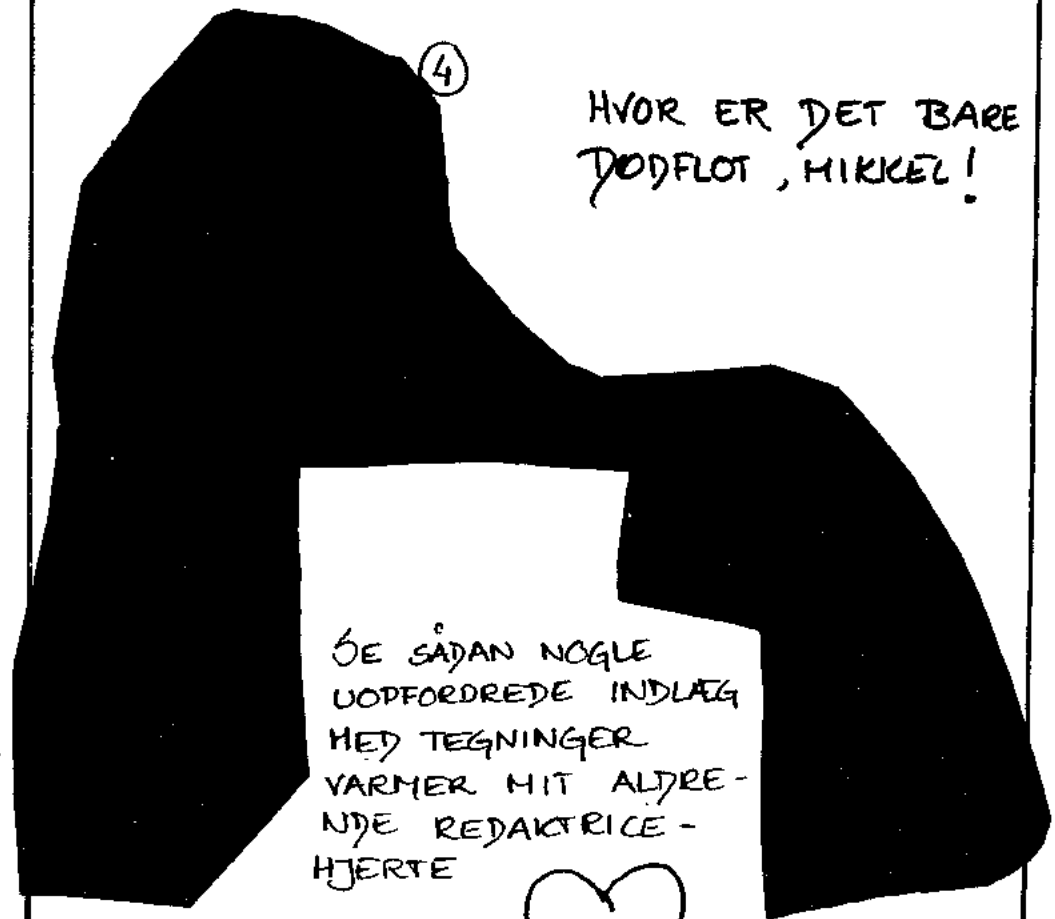 ④
HVOR ER DET BARE
DØDFLOT, MIKKEL!
SE SÅDAN NOGLE
UOPFORDREDE INDLÆG
MED TEGNINGER
VARMER MIT ALDRE-
NDE REDAKTRICE-
HJERTE